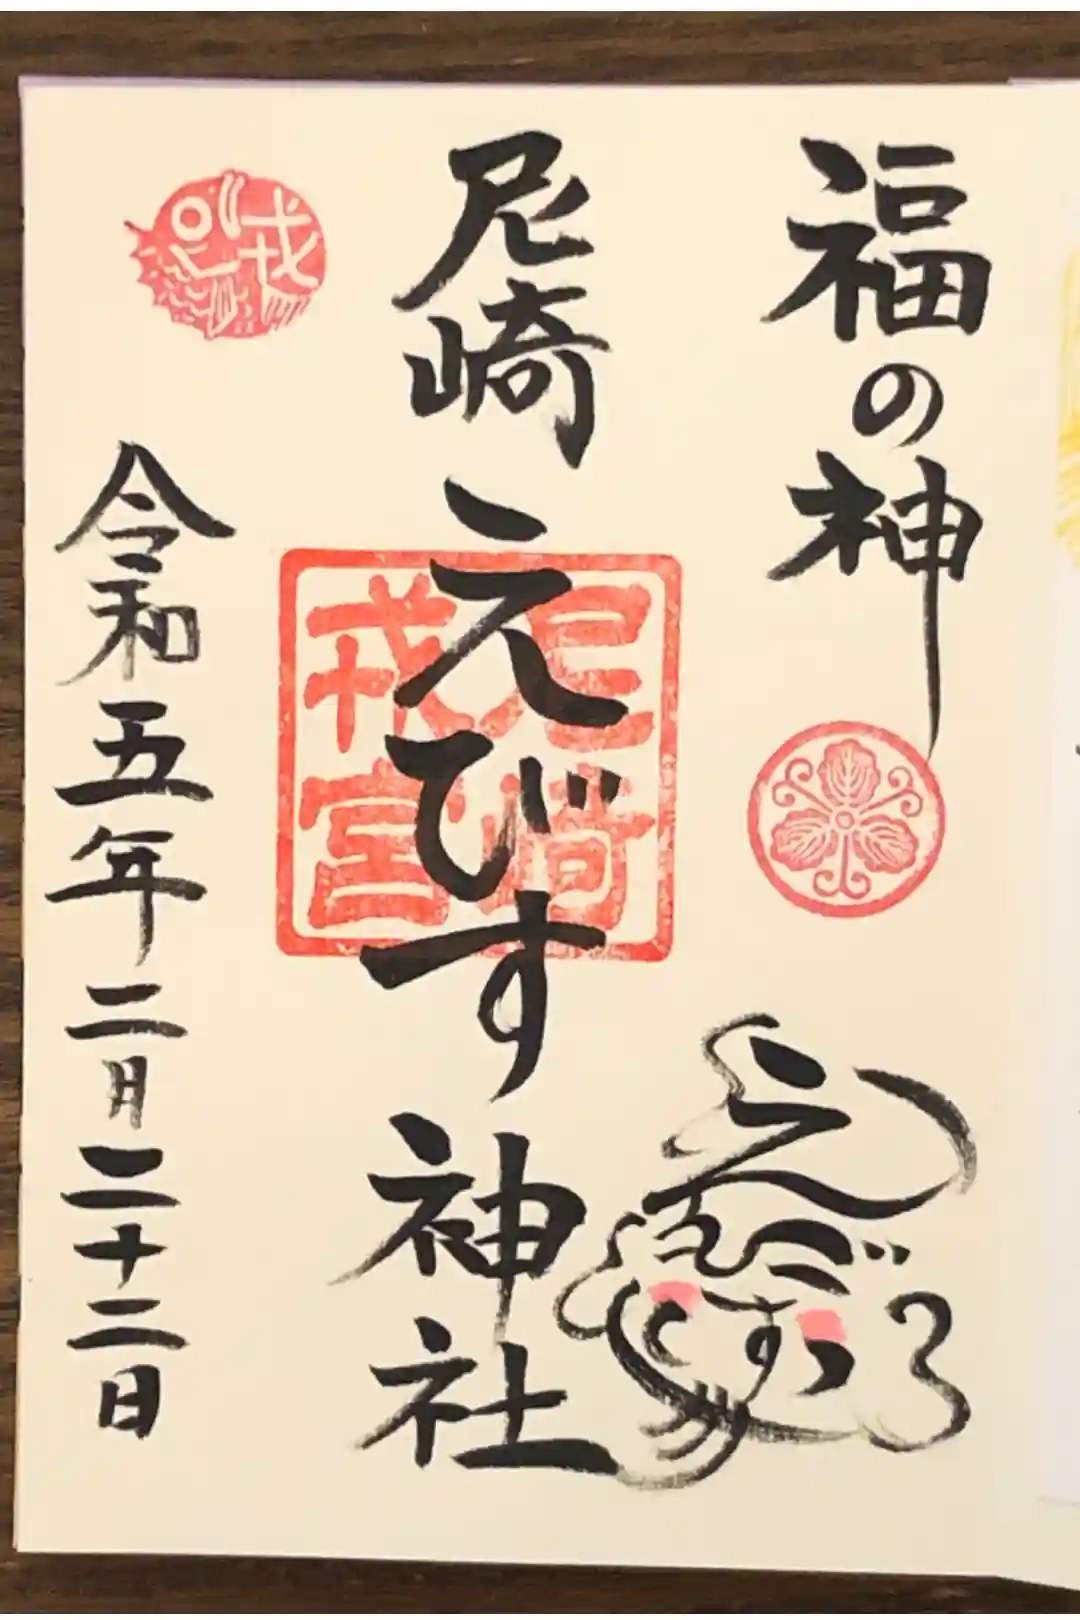 福の神
尼崎えびす神社
尼崎
戎宮
戎
令和五年二月二十二日